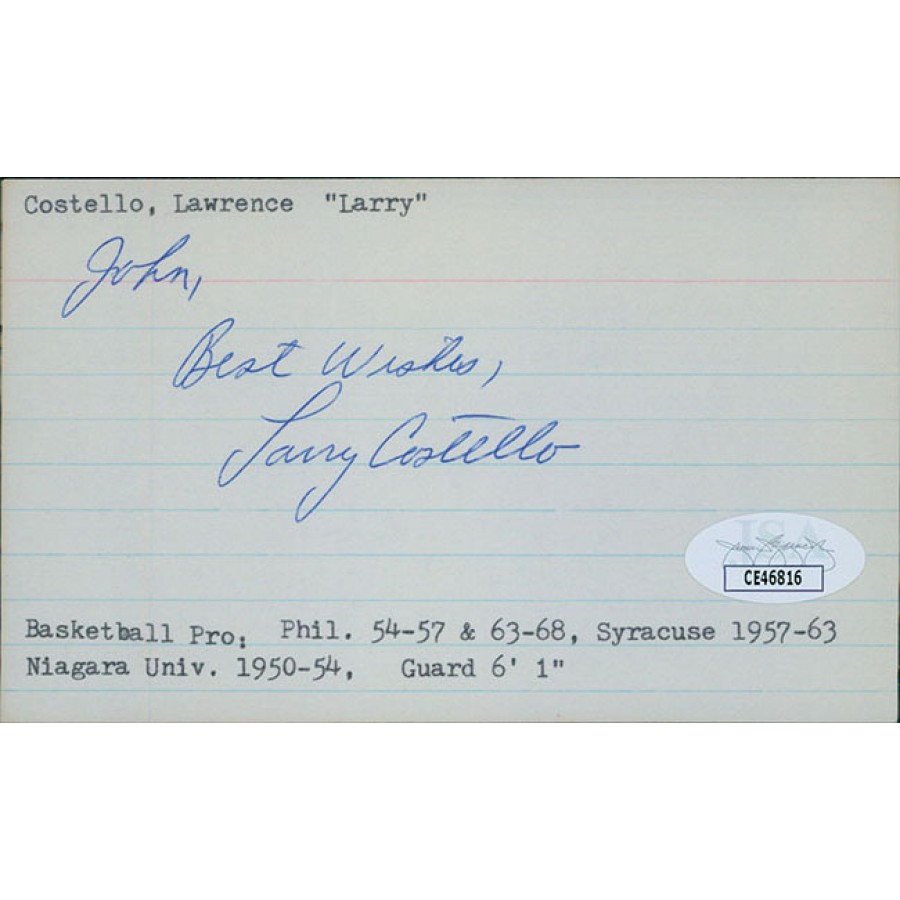 Costello, Lawrence "Larry"
John,
Best Wishes,
Larry Costello
JSA
CE46816
Basketball Pro: Phil. 54-57 & 63-68, Syracuse 1957-63
Niagara Univ. 1950-54, Guard 6' 1"